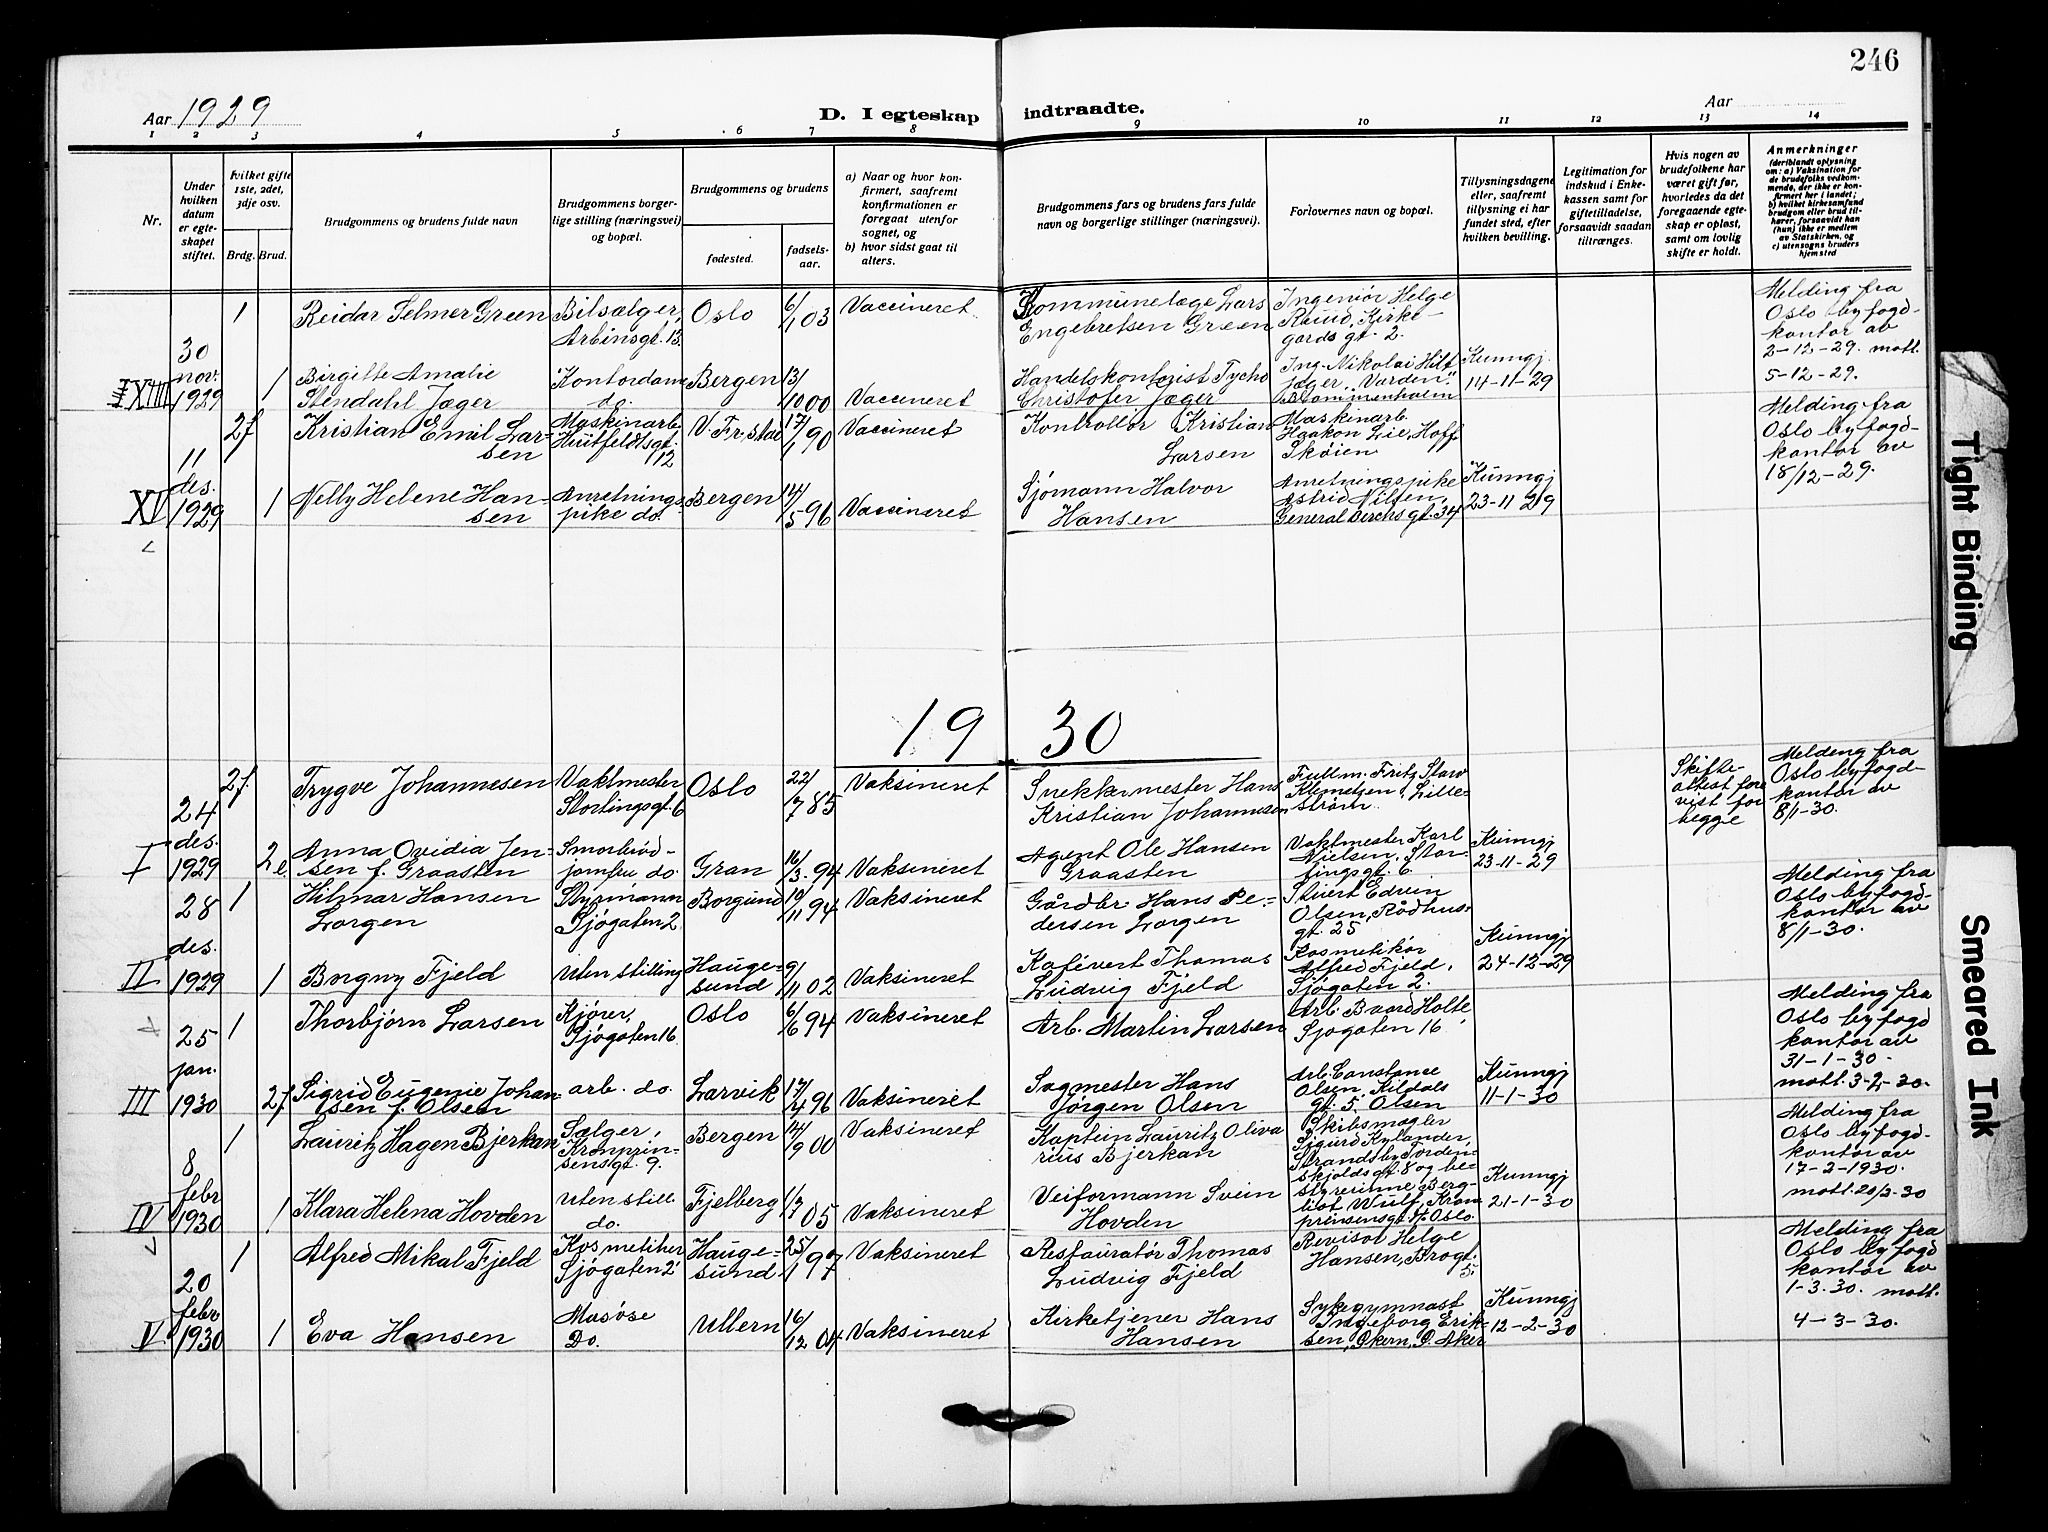 246
Aar 1929
D. I egteskap indtraadte.
Aar
1 2 3 4 5 6 7 8 9 10 11 12 13 14
Nr.
Under hvilken datum er egteskapet stiftet.
hvilket gifte 1ste, 2det, 3dje osv.
Brdg. Brud.
Brudgommens og brudens fulde navn
Brudgommens borgerlige stilling (næringsvei) og bopæl.
Brudgommens og brudens
fødested.
fødselsaar.
a) Naar og hvor konfirmert, saafremt konfirmationen er foregaat utenfor sognet, og
b) hvor sidst gaat til alters.
Brudgommens fars og brudens fars fulde navn og borgerlige stillinger (næringsvei).
Forlovernes navn og bopæl.
Tillysningsdagene eller, saafremt tillysning ei har fundet sted, efter hvilken bevilling.
Legitimation for indskud i Enkekassen samt for giftetilladelse, forsaavidt saadan tiltrænges.
Hvis nogen av brudefolkene har været gift før, hvorledes da det foregaaende egteskap er opløst, samt om lovlig skifte er holdt.
Anmerkninger
(deriblandt oplysning om: a) Vaksination for de brudefolks vedkommende, der ikke er konfirmert her i landet; b) hvilket kirkesamfund brudgom eller brud tilhører, forsaavidt han (hun) ikke er medlem av Statskirken, og c) utensogns bruders hjemsted
30 nov. 1929
1 Reidar Selmer Green
Bilsælger, Arbinsgt. 13.
Oslo 6/1 03 Vaccineret
Kommunelæge Lars Engebretsen Green
Ingeniør Helge Ruud, Kirkegards gt. 2.
Melding fra Oslo byfogdkontor av 2-12-29. mott. 5-12-29.
1 Birgitte Amalie Stendahl Jæger
Kontordame do.
Bergen 13/10 00 Vaccineret
Handelskontorist Tycho Christofer Jæger
Ing. Nikolai Hilt Jæger, "Varden", Blommenholm
Kunngj. 14-11-29
XV
11 des. 1929
2f Kristian Emil Larsen
Maskinarb. Huitfeldtsgt. 112
V. Fr.stad 17/1 90 Vaccineret
Kontrollør Kristian Larsen
Maskinarb. Haakon Lie, Hoff Skøien
Melding fra Oslo byfogdkontor av 18/12-29.
1 Nelly Helene Hansen
Anretningspike do.
Bergen 14/5 96 Vaccineret
Sjømann Halvor Hansen
Anretningspike Astrid Nilsen, General Birchs gt. 34
Kunngj 23-11 29
1930
I
24 des. 1929
2f. Trygve Johannesen
Vaktmester Stortingsgt. 6
Oslo 22/7 85 Vaksineret
Snekkermester Hans Kristian Johannesen
Fullm. Fritz Starv Klemetsen, Lillestrøm
Skifteattest forevist for begge
Melding fra Oslo byfogdkontor av 8/1-30.
2 e. Anna Ovidia Jensen f. Graasten
Smørbrødjomfru do.
Gran 16/3. 94 Vaksineret
Agent Ole Hansen Graasten
Vaktmester Karl Nielsen, Stortingsgt. 6.
Kunngj 23-11-29
II
28 des. 1929
1 Hilmar Hansen Lorgen
Styrmann Sjøgaten 2
Borgund 10/11 94 Vaksineret
Gårdbr Hans Pedersen Lorgen
Stuert Edvin Olsen, Rådhusgt. 25
Melding fra Oslo byfogdkontor av 8/1-30.
1 Borgny Fjeld
Uten stilling
Haugesund 9/11 02 Vaksineret
Kafévert Thomas Ludvig Fjeld
Kosmetikør Alfred Fjeld, Sjøgaten 2.
Kunngj 24-12-29
III
25 jan. 1930
1 Thorbjørn Larsen
Kjører, Sjøgaten 16
Oslo 6/6 94 Vaksineret
Arb. Martin Larsen
Arb. Baard Holte Sjøgaten 16
Melding fra Oslo byfogd kontor av 31-1-30 - mott. 3-2-30.
2f Sigrid Eugenie Johansen f. Olsen
arb. do.
Larvik 17/4 96 Vaksineret
Sagmester Hans Jørgen Olsen
Arb. Constance Olsen, Kildals gt. 5. Olsen
Kunngj 11-1-30
IV
8 febr 1930
1 Lauritz Hagen Bjerkan
Sælger, Kronprinsensgt. 9.
Bergen 14/9 00 Vaksineret
Kaptein Lauritz Olivarius Bjerkan
Skibsmægler Sigurd Kylander, Strandsby Tordenskjolds gt. 8 og bestyrerinne Bergliot Wulf, Kronprinsensgt. Oslo.
Melding fra Oslo byfogdkontor av 17-2-1930. mott. 20/2-30
1 Klara Helena Hovden
Uten still. do.
Fjelberg 1/7 05 Vaksineret
Veiformann Svein Hovden
Kunngj 21-1-30
V
20 febr 1930
1 Alfred Mikal Fjeld
Kosmetiker Sjøgaten 2
Haugesund 25/1 97 Vaksineret
Restauratør Thomas Ludvig Fjeld
Revisor Helge Hansen, Frogt. 5.
Melding fra Oslo byfogd kontor av 1-3-30. mott. 4-3-30.
1 Eva Hansen
Masøse Do.
Ullern 16/12 04 Vaksineret
Kirketjener Hans Hansen
Sykegymnast Ingeborg Eriksen, Økern, Ø. Aker
Kunngj 12-2-30
Tight Binding
Smeared Ink